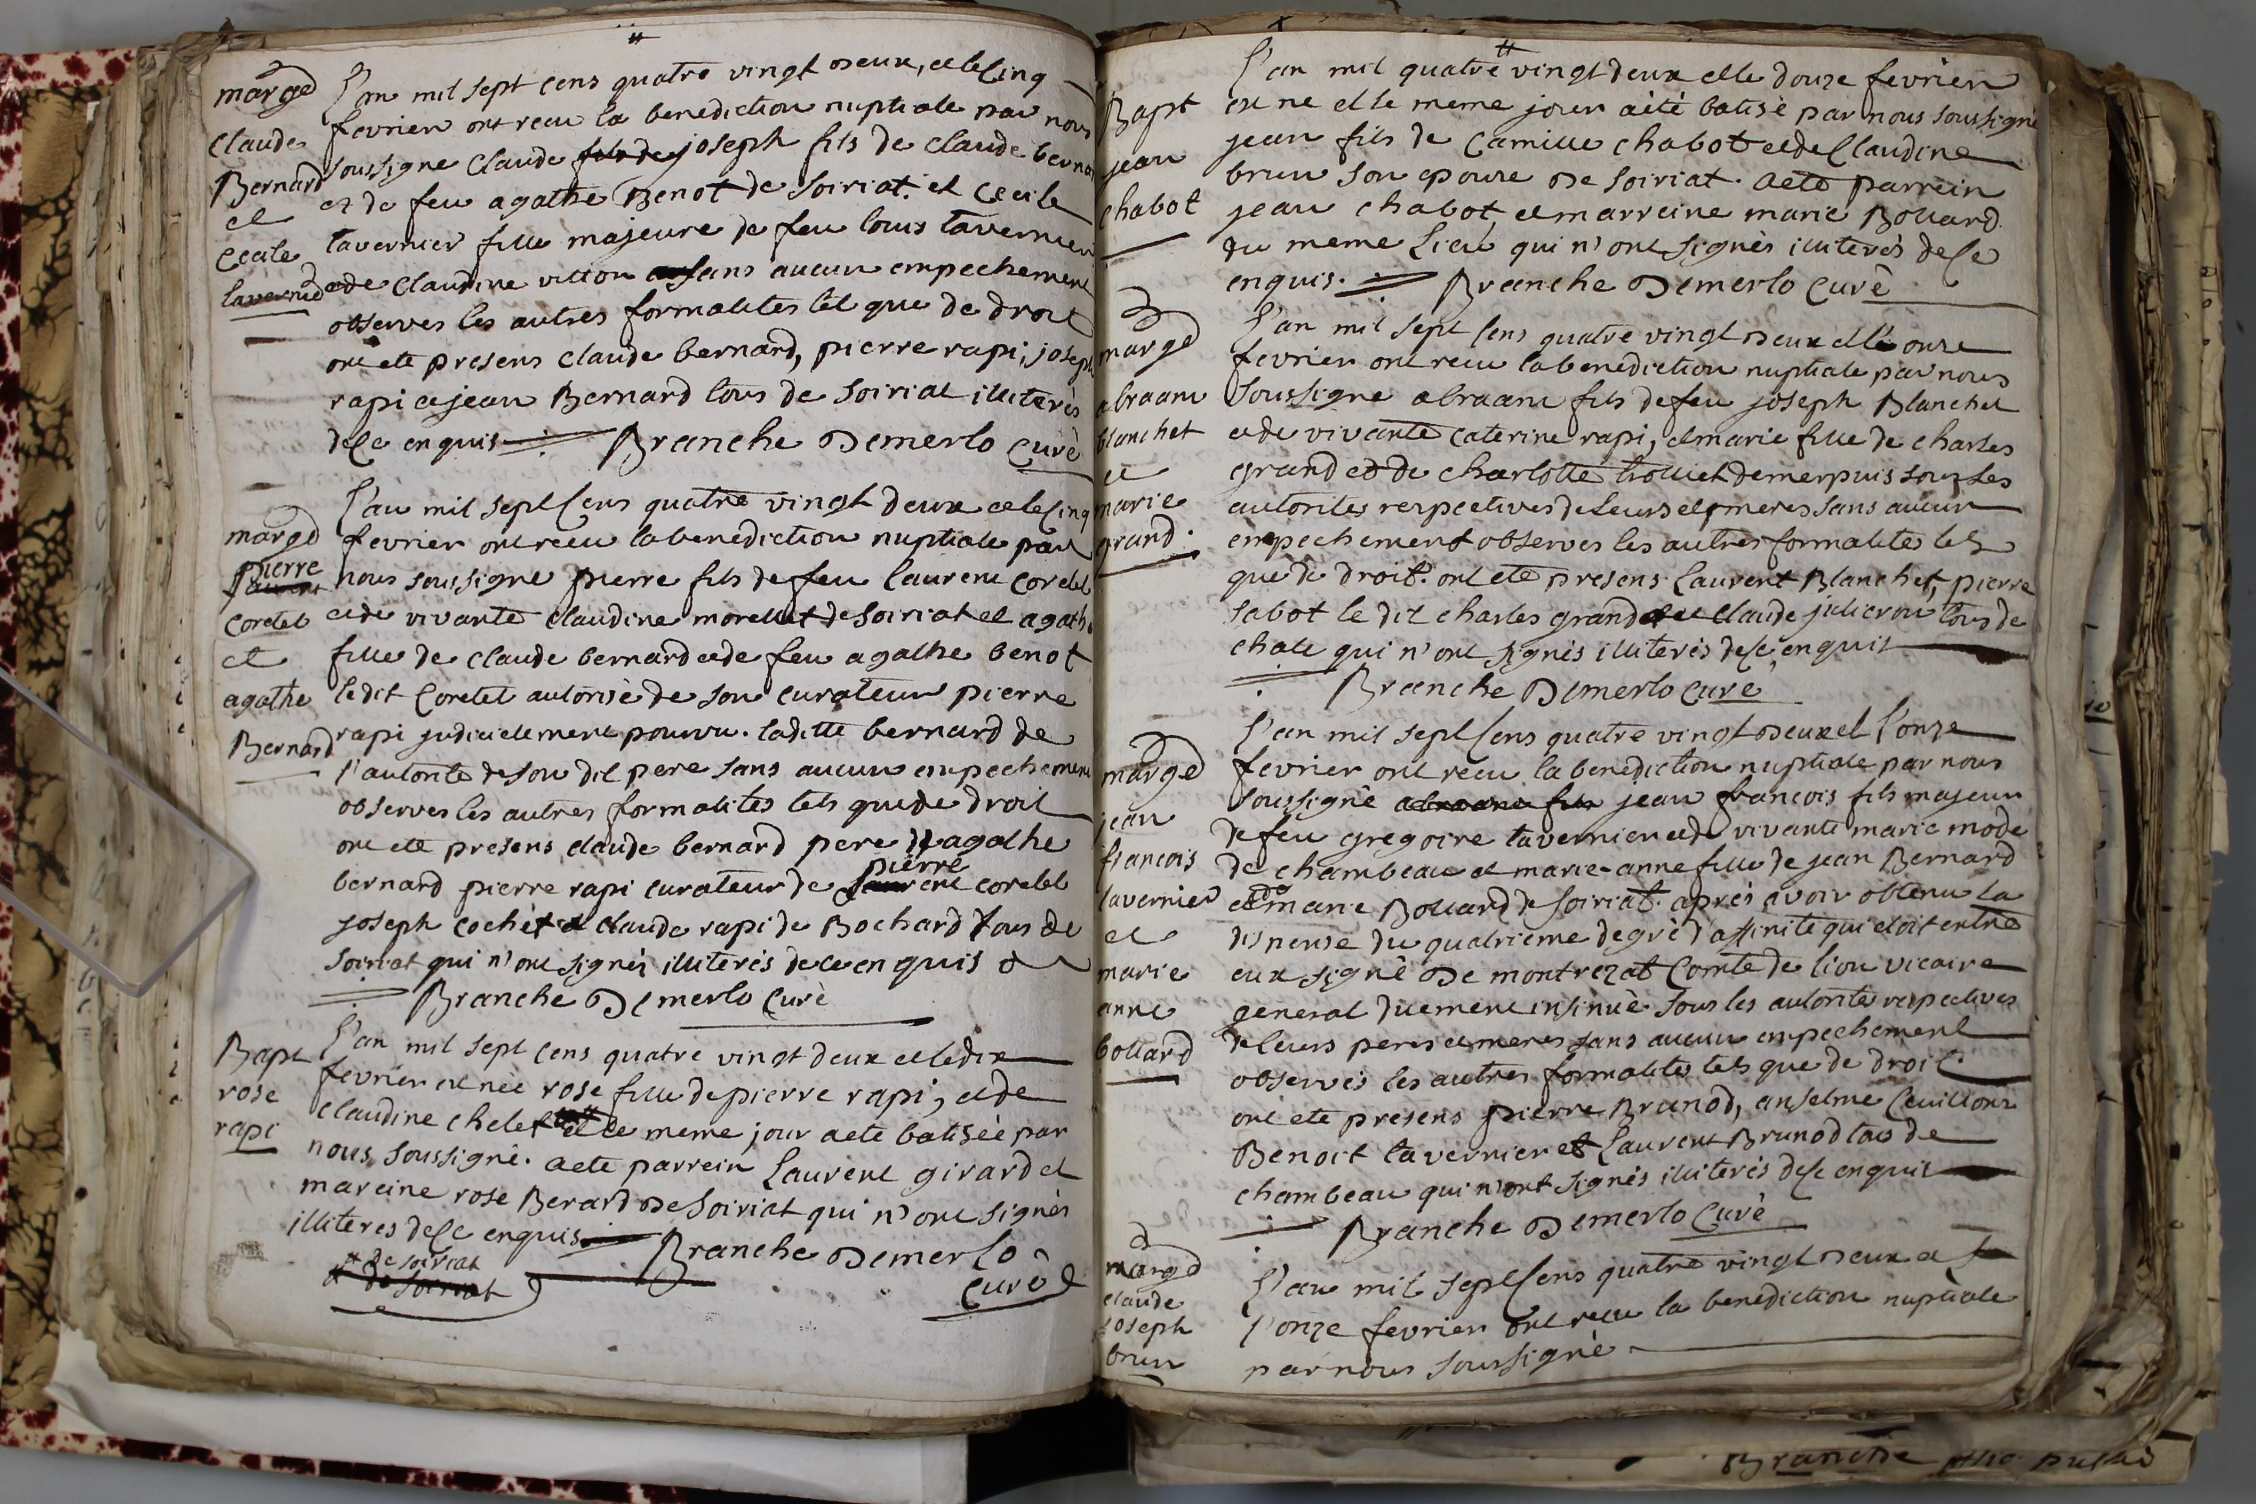 marge
Claude
Bernard
et
Cecile
tavernie
L'an mil sept cens quatre vingt deux, et le cinq
fevrier ont recu la benediction nuptiale par nous
soussigne claude fils de joseph fils de claude bernar
et de feu agathe Benot de soiriat. et cecile
tavernier fille majeure de feu louis tavernier
et de claudine vitton sans aucun empechement
observes les autres formalites tel que de droit
ont ete presens claude bernard, pierre rapi, joseph
rapi et jean Bernard tous de soiriat illiterés
de ce enquis Branche Demerlo Curé
marge
pierre
laurent
coretet
et
agathe
Bernard
L'an mil sept cens quatre vingt deux et le cinq
fevrier ont recu la benediction nuptiale par
nous soussigne pierre fils de feu laurent coretet
et de vivante claudine morellet de soiriat et agathe
fille de claude bernard et de feu agathe benot
ledit coretet autorisè de son curateur pierre
rapi judiciellement pourvu. laditte bernard de
l'autorite de son dit pere sans aucun empechement
observes les autres formalites tels que de droit
ont ete presens claude bernard pere d'agathe
pierre
bernard pierre rapi curateur de laurent coretet
joseph cochet et claude rapi de Bochard tous de
soiriat qui n'ont signés illiterés de ce enquis
Branche Demerlo Curè
Bapt
rose
rapi
L'an mil sept cens quatre vingt deux et le dix
fevrier est nèe rose fille de pierre rapi, et de
claudine chelet et le meme jour a ete batisèe par
nous soussigné. a ete parrein Laurent girard et
mareine rose Berard de soiriat qui n'ont signès
illiteres de ce enquis Branche Demerlo
Curè
de soiriat
de soiriat
Bapt
jean
chabot
L'an mil quatre vingt deux et le douze fevrier
est ne et le meme jour a été batisè par nous soussigné
jean fils de Camille chabot et de Claudine
brun son epouze de soiriat. a ete parrein
jean chabot et marreine marie Bollard
du meme Lieu qui n'ont signés illiterés de ce
enquis. Branche Demerlo Curè
marge
abraam
blanchet
et
marie
grand.
L'an mil sept cens quatre vingt deux et l'onze
fevrier ont recu la benediction nuptiale par nous
soussigne abraam fils de feu joseph Blanchet
et de vivante caterine rapi, et marie fille de charles
grand et de charlotte trolliet demerpuis sous les
autorites respectives de leurs et meres sans aucun
empechement observes les autres formalites tels
que de droit. ont ete presens Laurent Blanchet, pierre
sabot le dit charles grand et claude julieron tous de
chate qui n'ont signés illiterés de ce enquit
Branche Demerlo Curé
marge
jean
francois
tavernier
et
marie
anne
bollard
L'an mil sept cens quatre vingt deux et l'onze
fevrier ont recu la benediction nuptiale par nous
soussignè abraam fils jean francois fils majeur
de feu gregoire tavernier et de vivante marie mode
de chambeau et marie-anne fille de jean Bernard
et de marie Bollard de soiriat. après avoir obtenu la
dispense du quatrieme degrè d'affinité qui etoit entre
eux signè De montrezat Comte de lion vicaire
general duement insinuè. sous les autorite respectives
de leurs peres et meres sans aucun empechement
observés les autres formalites tels que de droit.
ont ete presens pierre Brunod, anselme Cuillour
Benoit tavernier et Laurent Brunod tous de
chambeau qui n'ont signés illiterés de ce enquit
Branche Demerlo Curè
marge
claude
joseph
brun
L'an mil sept cens quatre vingt deux et
l'onze fevrier ont recu la benediction nuptiale
par nous soussignè
Branche